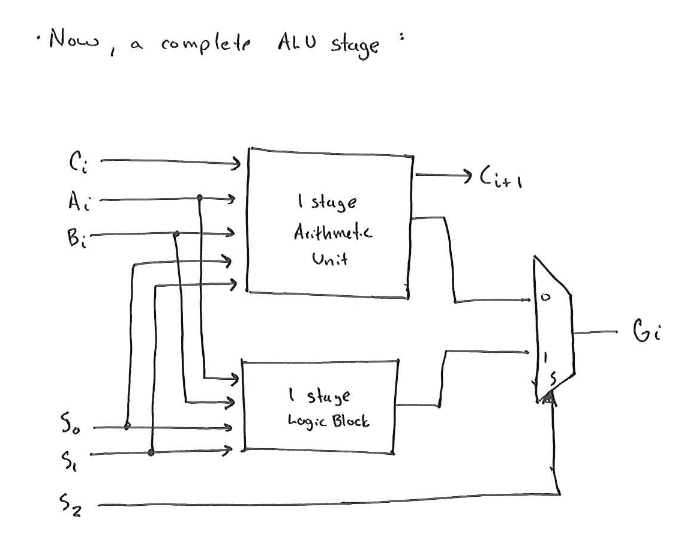 · Now, a complete ALU stage :
Ci
Ai
Bi
1 stage
Arithmetic
Unit
Ci+1
0
1
S
Gi
1 stage
Logic Block
S0
S1
S2